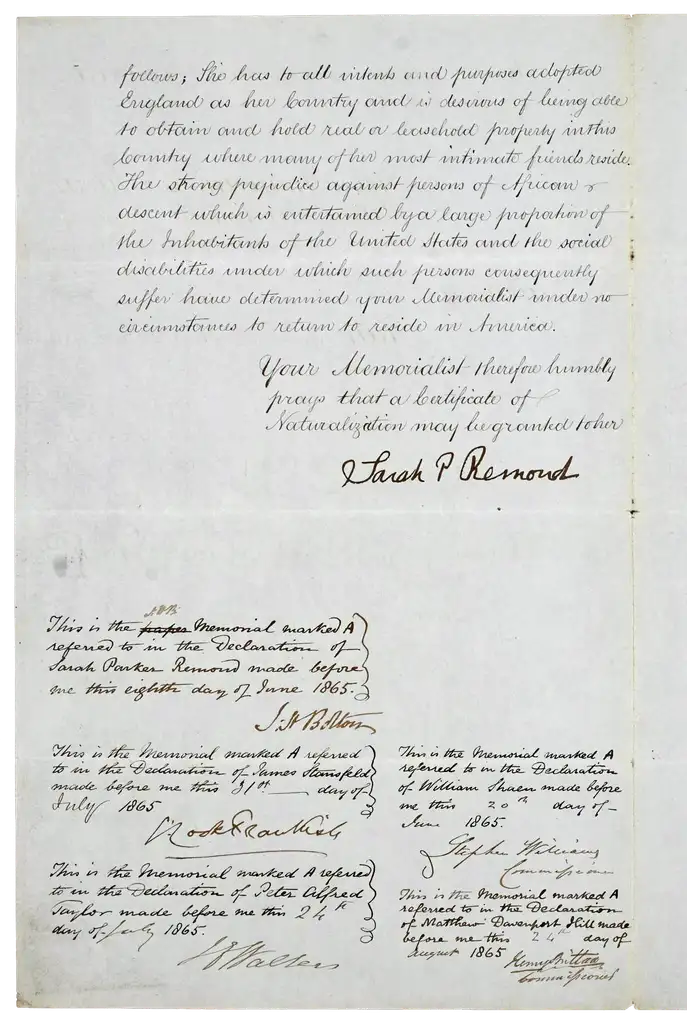 follows; She has to all intents and purposes adopted
England as her Country and is desirous of being able
to obtain and hold real or leasehold property in this
Country where many of her most intimate friends reside.
The strong prejudice against persons of African
descent which is entertained by a large proportion of
the Inhabitants of the United States and the social
disabilities under which such persons consequently
suffer have determined your Memorialist under no
circumstances to return to reside in America.
Your Memorialist therefore humbly
prays that a Certificate of
Naturalization may be granted to her
Sarah P Remond
This is the paper Memorial marked A
referred to in the Declaration of
Sarah Parker Remond made before
me this eighth day of June 1865.
J. H Bolton
This is the Memorial marked A referred
to in the Declaration of James Stansfeld
made before me this 31st day of
July 1865
This is the Memorial marked A referred
to in the Declaration of Peter Alfred
Taylor made before me this 24th
day of July 1865.
Walters
This is the Memorial marked A
referred to in the Declaration
of William Shaen made before
me this 20th day of
June 1865.
Stephen Williams
Commissioner
This is the Memorial marked A
referred to in the Declaration
of Matthew Davenport Hill made
before me this 24th day of
August 1865
Henry Brittan
Commissioner